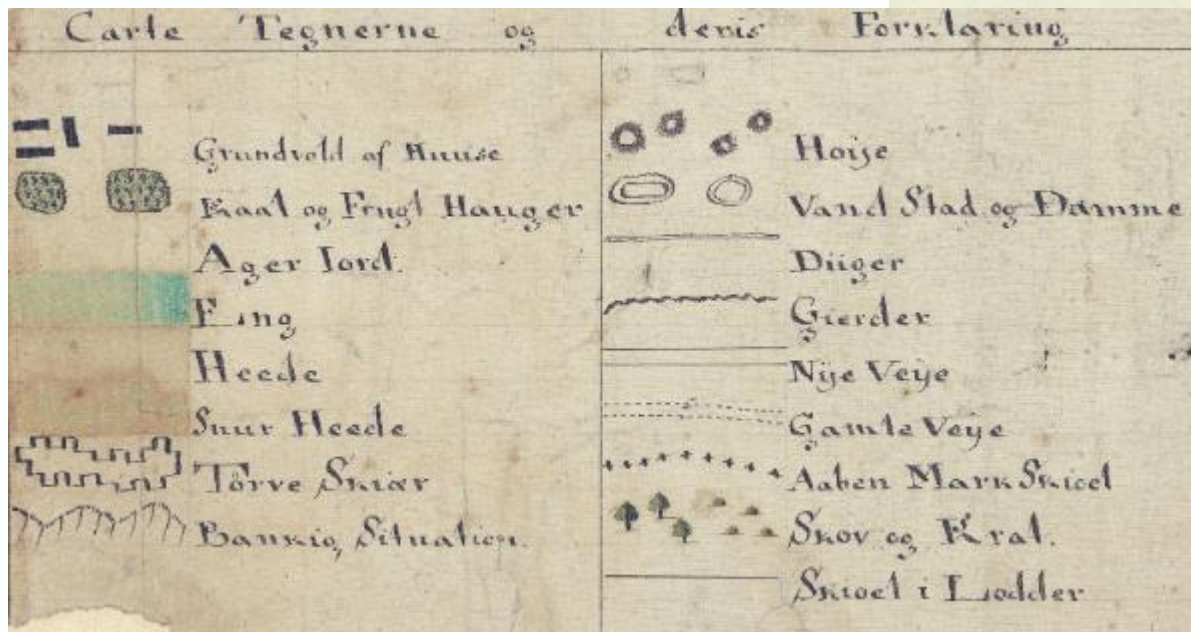 Carte Tegnerne og deris Forklaring
Grundvold af Huuse
Kaal og Frugt Hauger
Ager Iord.
Eing
Heede
Suur Heede
Törve Skiær
Bankig Situation.
Hoije
Vand Stad og Damme
Diiger
Gierder
Nije Veije
Gamle Veije
Aaben Mark Skieel
Skov og Krat.
Skioel i Lodder